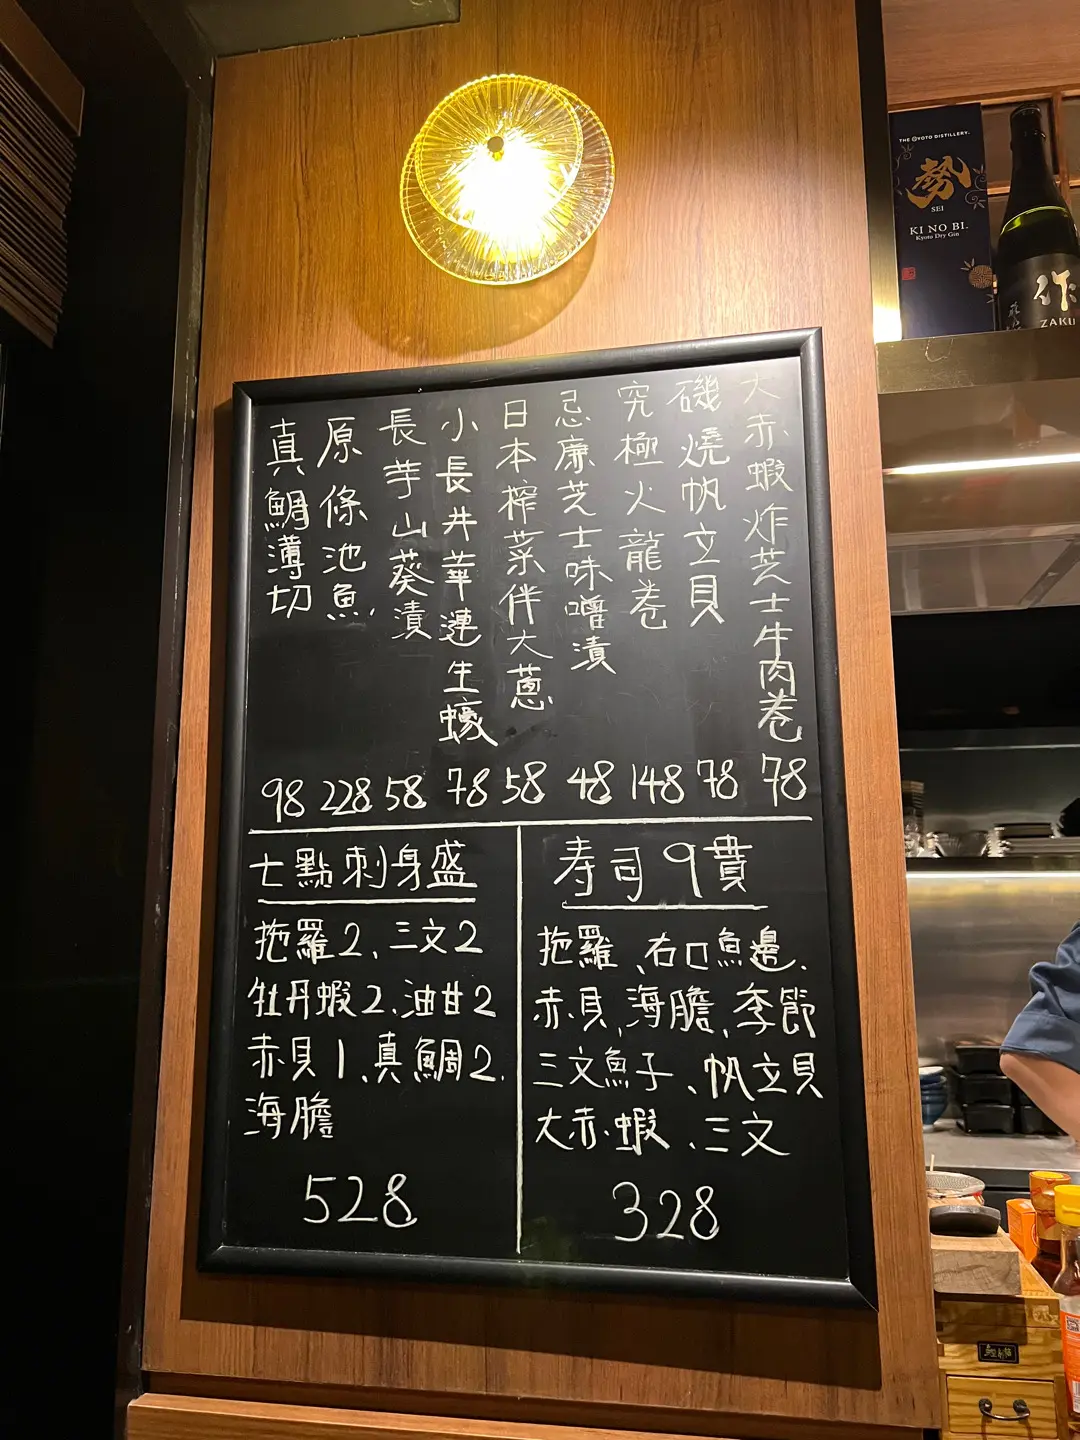 大赤蝦炸芝士牛肉卷 78
磯燒帆立貝 78
究極火龍卷 148
忌廉芝士味噌漬 48
日本榨菜伴大蔥 58
小長井華蓮生蠔 78
長芋山葵漬 58
原條池魚 228
真鯛薄切 98
七點刺身盛
拖羅2、三文2
牡丹蝦2、油甘2
赤貝1、真鯛2、
海膽
528
寿司9貫
拖羅、右口魚邊、
赤貝、海膽、季節
三文魚子、帆立貝
大赤蝦、三文
328
THE KYOTO DISTILLERY.
勢
SEI
KI NO BI.
Kyoto Dry Gin
作
ZAKU